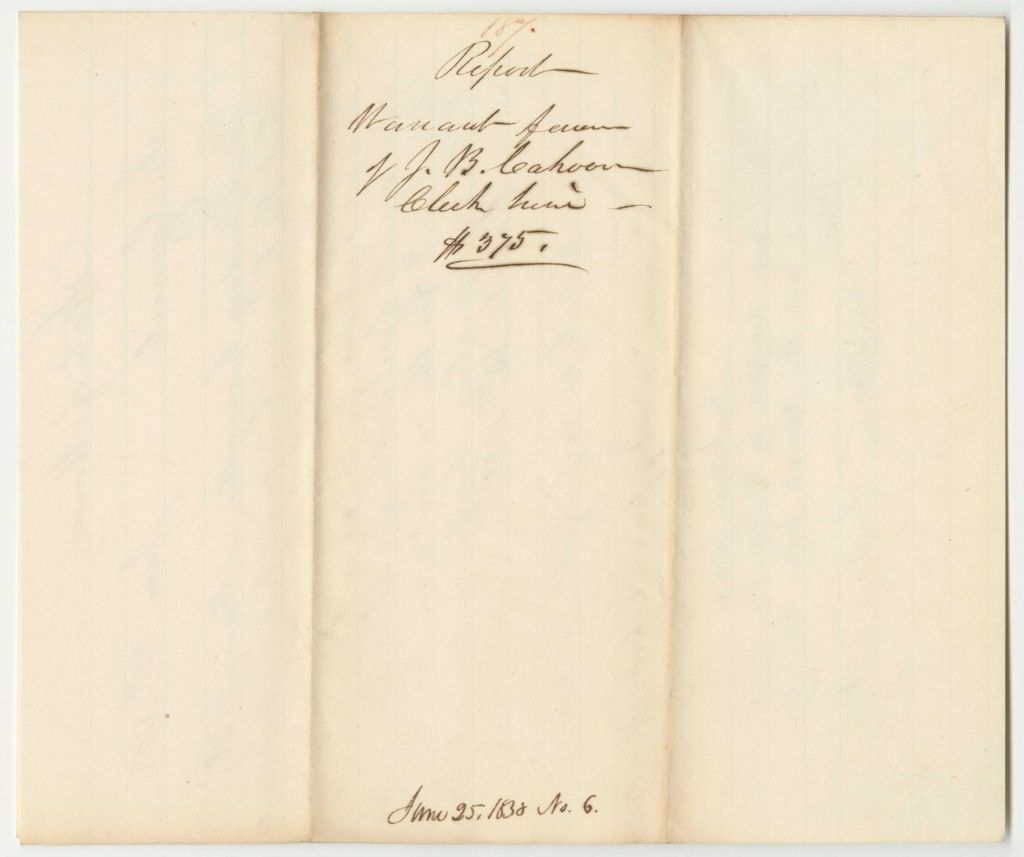 187.
Report
Warrant favor
of J. B. Cahoon
Clerk hire
$375.
June 25, 1838 No. 6.